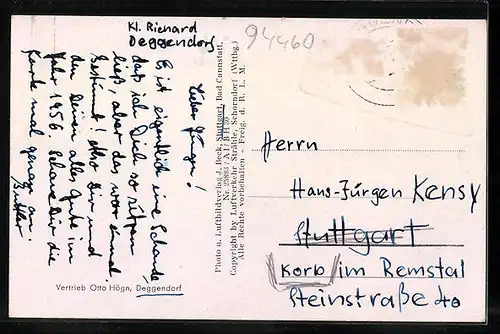 Kl. Richard
Deggendorf
94460
Lieber Jürgen!
Es ist eigentlich eine Schande
daß ich Dich so sitzen
ließ, aber das war einmal
bestimmt! Also Dir und
den Deinen alles Gute im
Jahr 1956. Schaue Dir die
Karte mal genau an.
Vertrieb Otto Högn, Deggendorf
Photo u. Luftbildverlag J. Beck, Stuttgart, Bad Cannstatt,
Copyright by Luftverkehr Strähle, Schorndorf (Wttbg.)
Alle Rechte vorbehalten - Freig. d. R. L. M.
Herrn
Hans-Jürgen Kensy
Stuttgart
Korb im Remstal
Steinstraße 40